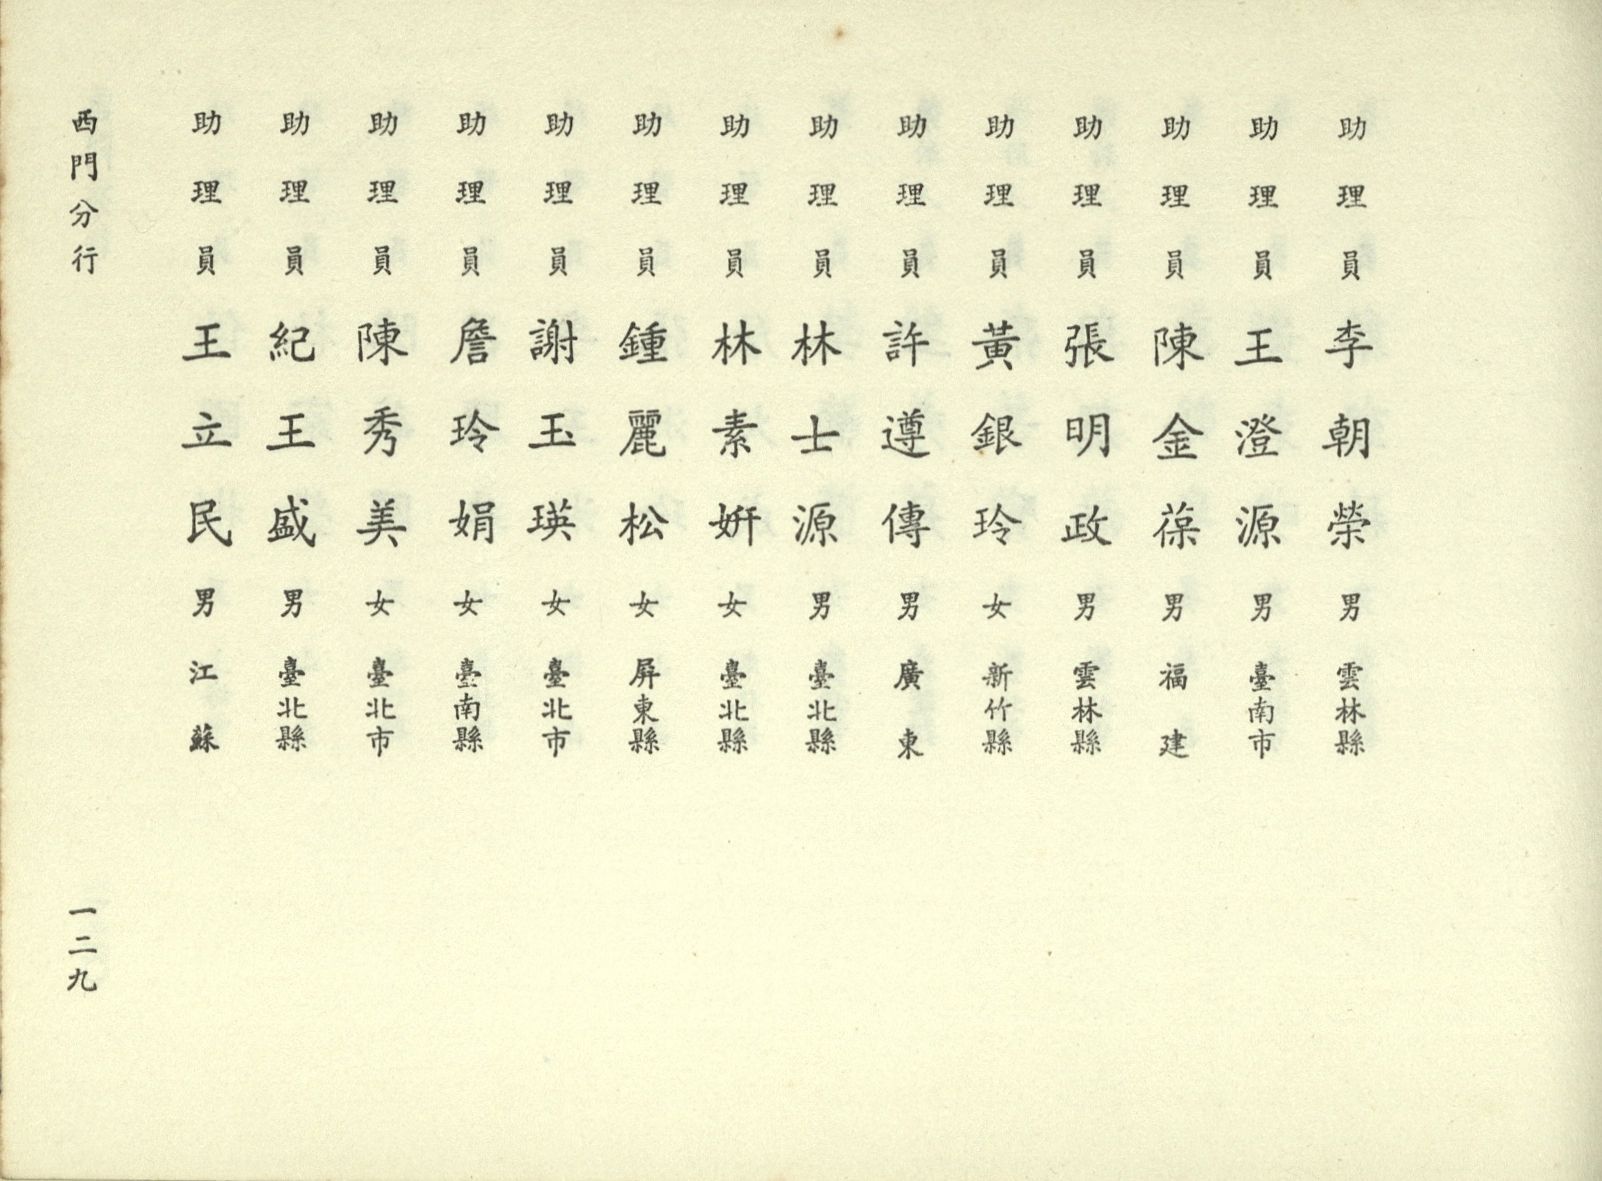 助理員李朝榮男雲林縣
助理員王澄源男臺南市
助理員陳金葆男福建
助理員張明政男雲林縣
助理員黃銀玲女新竹縣
助理員許遵傳男廣東
助理員林士源男臺北縣
助理員林素姸女臺北縣
助理員鍾麗松女屏東縣
助理員謝玉瑛女臺北市
助理員詹玲娟女臺南縣
助理員陳秀美女臺北市
助理員紀王盛男臺北縣
助理員王立民男江蘇
西門分行
一二九